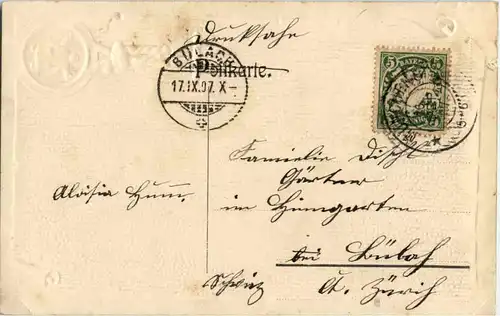 Drucksache
BÜLACH
Postkarte.
17.IX.07. X-
5 BAYERN
Familie
Gärtner
Aloisia Humm.
im Himgarten
bei Bülach
Schweiz
Kt. Zürich